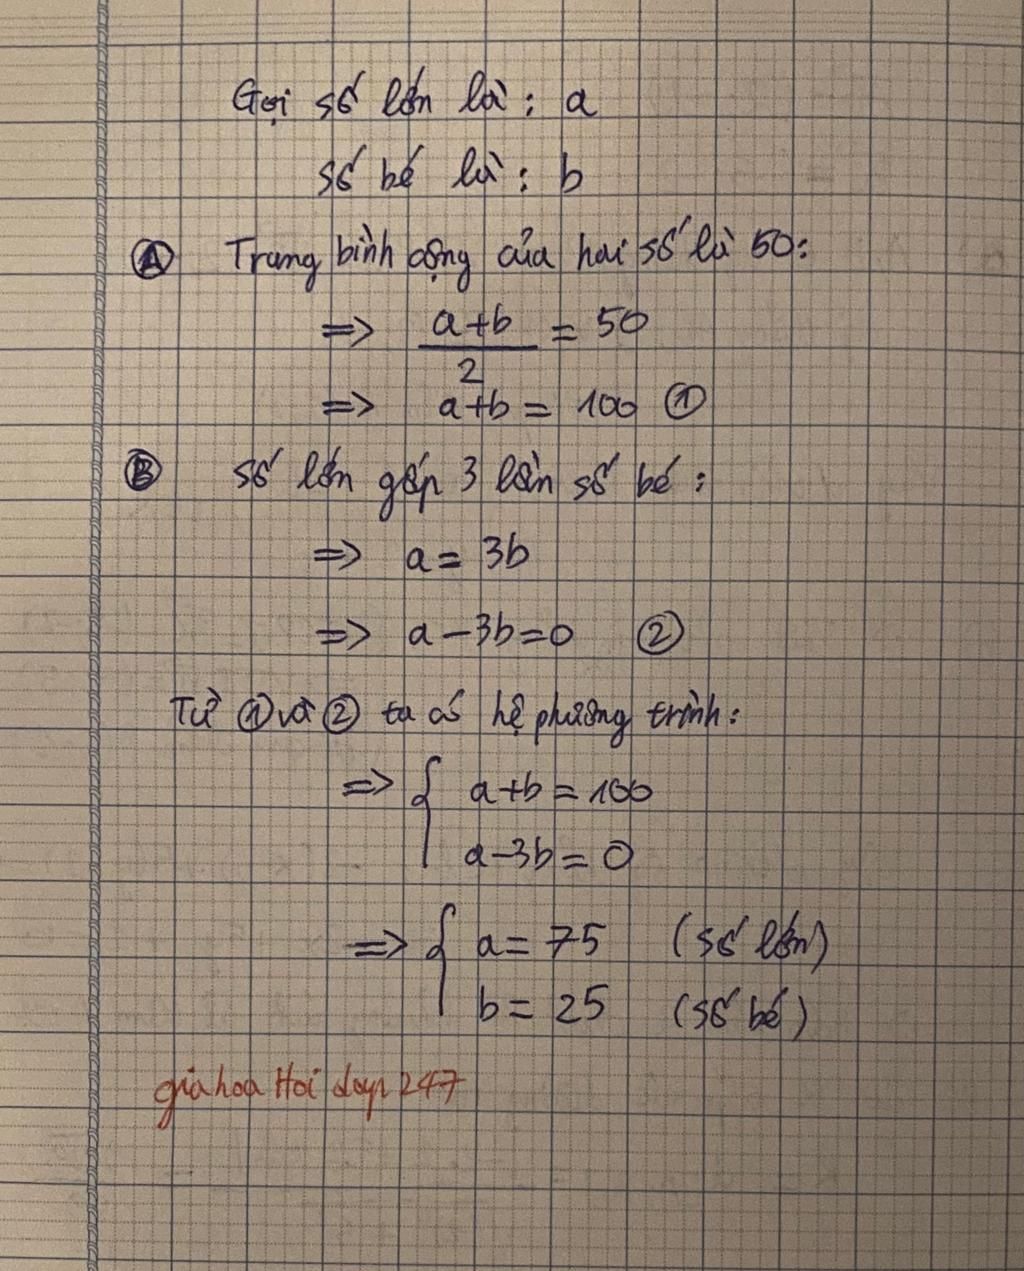 Gọi số lớn là : a
số bé là : b
Ⓐ Trung bình cộng của hai số là 50:
=> a+b/2 = 50
=> a+b = 100 ①
Ⓑ số lớn gấp 3 lần số bé :
=> a = 3b
=> a - 3b = 0 ②
Từ ① và ② ta có hệ phương trình:
=> { a+b = 100
a-3b = 0
=> { a = 75 (số lớn)
b = 25 (số bé)
giahoa Hoi dap 247